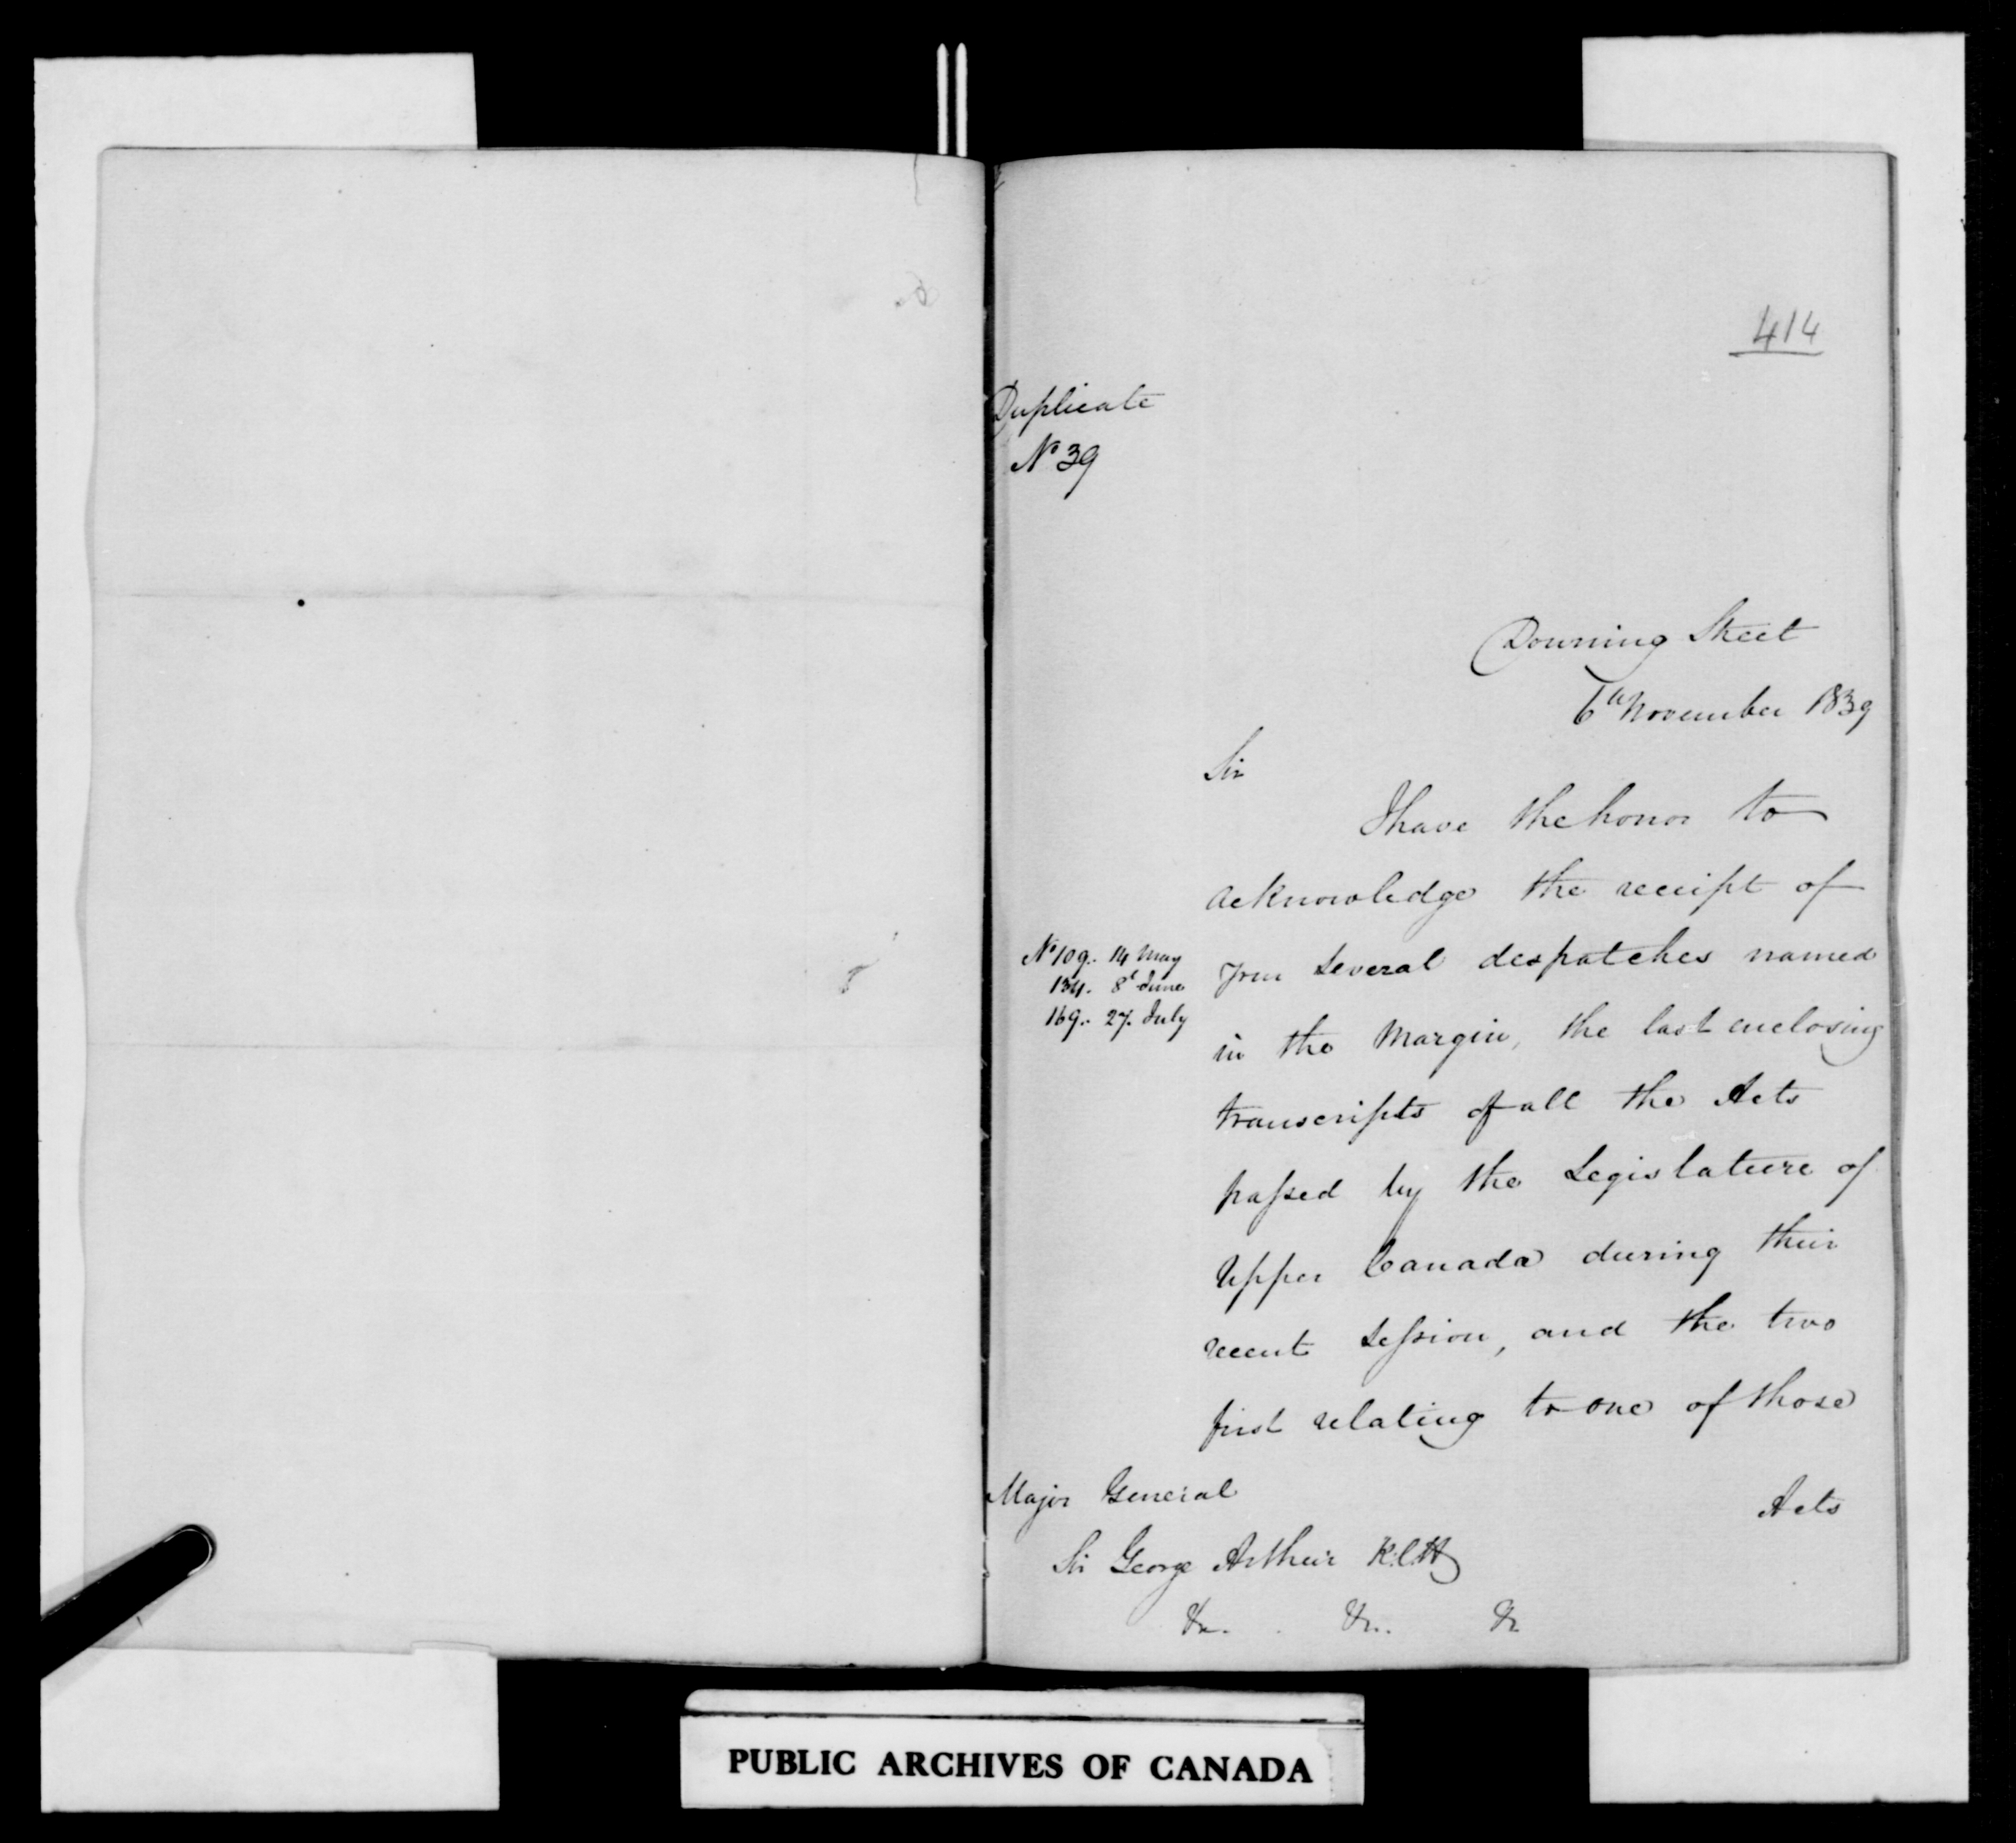 414
Duplicate
No 39
Downing Street
6th November 1839
Sir
I have the honor to
acknowledge the receipt of
No 109. 14 May
134. 8t June
169. 27. July
your several despatches named
in the Margin, the last enclosing
transcripts of all the Acts
passed by the Legislature of
Upper Canada during their
recent Session, and the two
first relating to one of those
Acts
Major General
Sir George Arthur K.C.H
&c. &c. &c
PUBLIC ARCHIVES OF CANADA